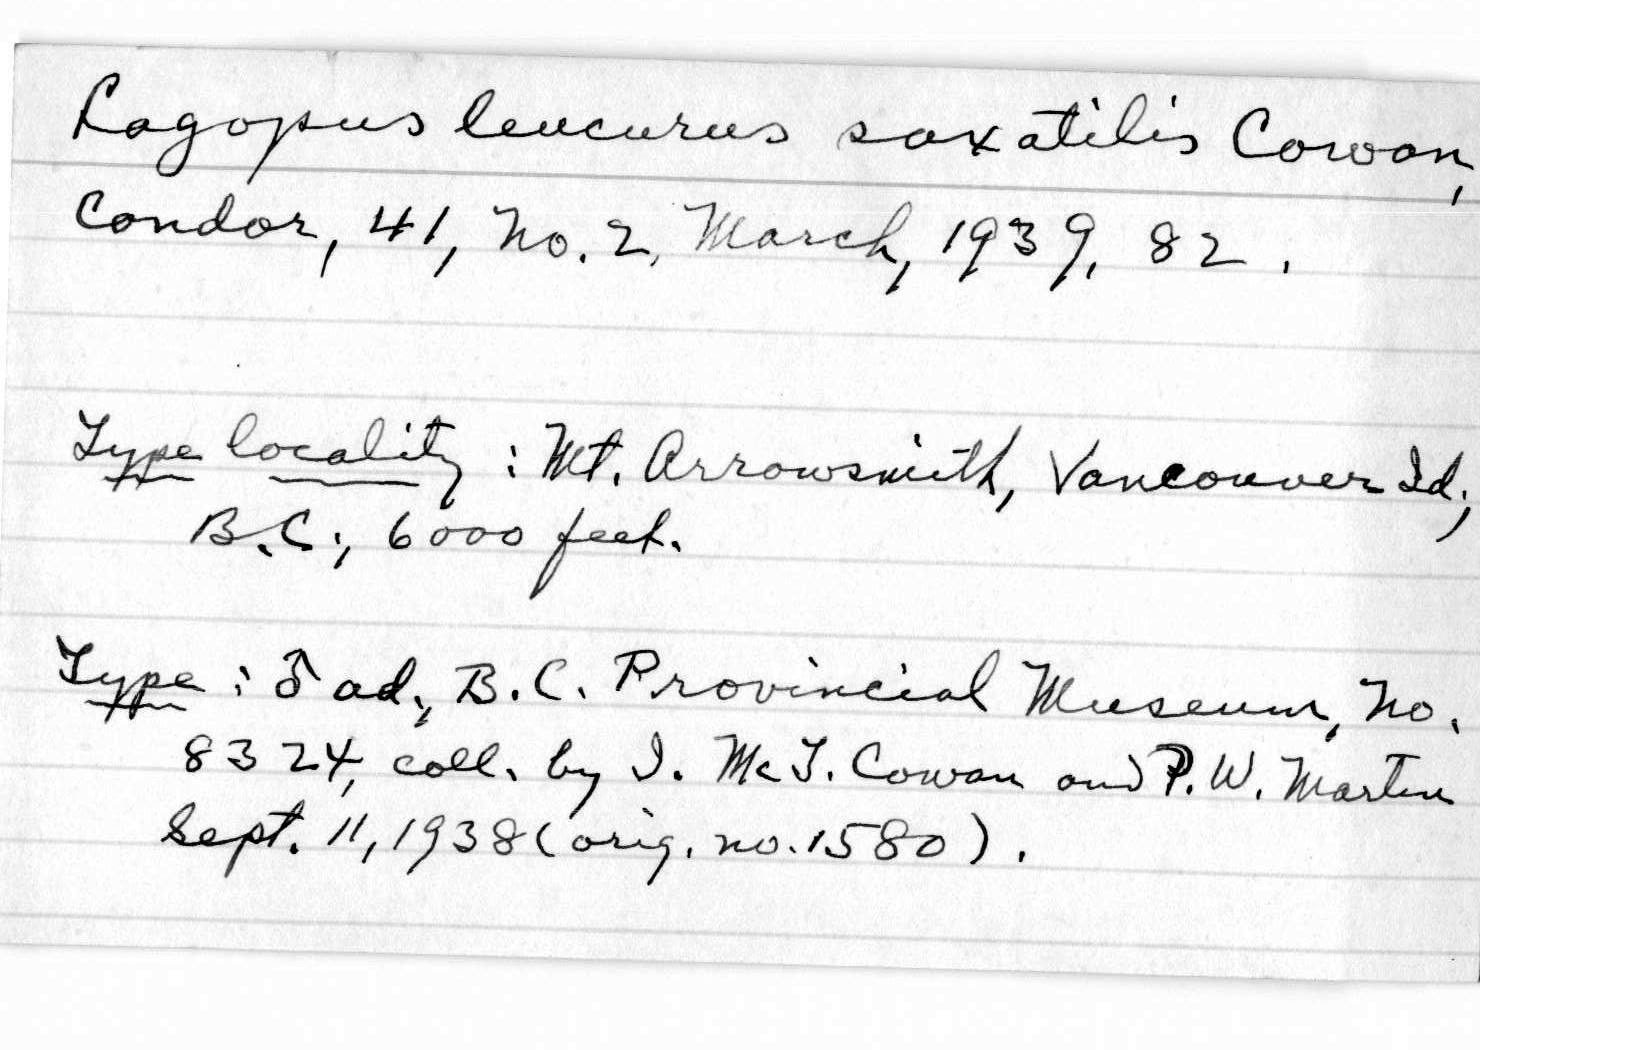 Lagopus leucurus saxatilis Cowan,
Condor, 41, No. 2, March, 1939, 82.
Type locality: Mt. Arrowsmith, Vancouver Id.,
B.C., 6000 feet.
Type: ♂ ad., B.C. Provincial Museum, No.
8324, coll. by I. McT. Cowan and P. W. Martin
Sept. 11, 1938 (orig. no. 1580).